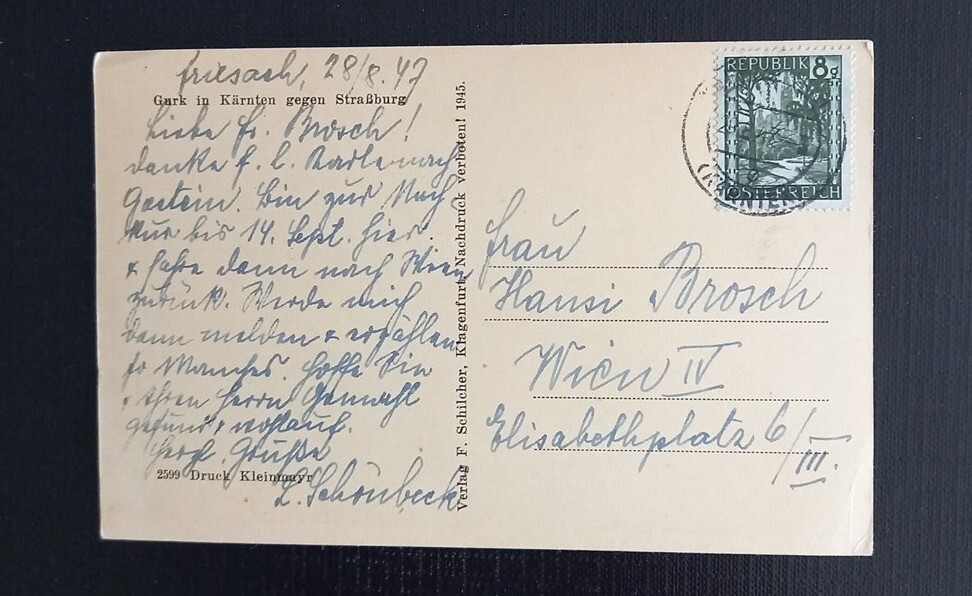 Friesach, 28/8.47
Gurk in Kärnten gegen Straßburg
Liebe Fr. Brosch!
Danke f. l. Karte nach
Gastein. Bin zur Nach
kur bis 14. Sept. hier.
& fahre dann nach Wien
zurück. Werde mich
dann melden & erzählen
so Manches. Hoffe Sie
& Ihren Herrn Gemahl
gesund & wohlauf.
Herzl. Grüße
L. Schönbeck
2599 Druck Kleinmayr
Verlag F. Schilcher, Klagenfurt, Nachdruck verboten! 1945.
REPUBLIK 8g
ÖSTERREICH
(KÄRNTEN)
Frau
Hansi Brosch
Wien IV
Elisabethplatz 6/
III.